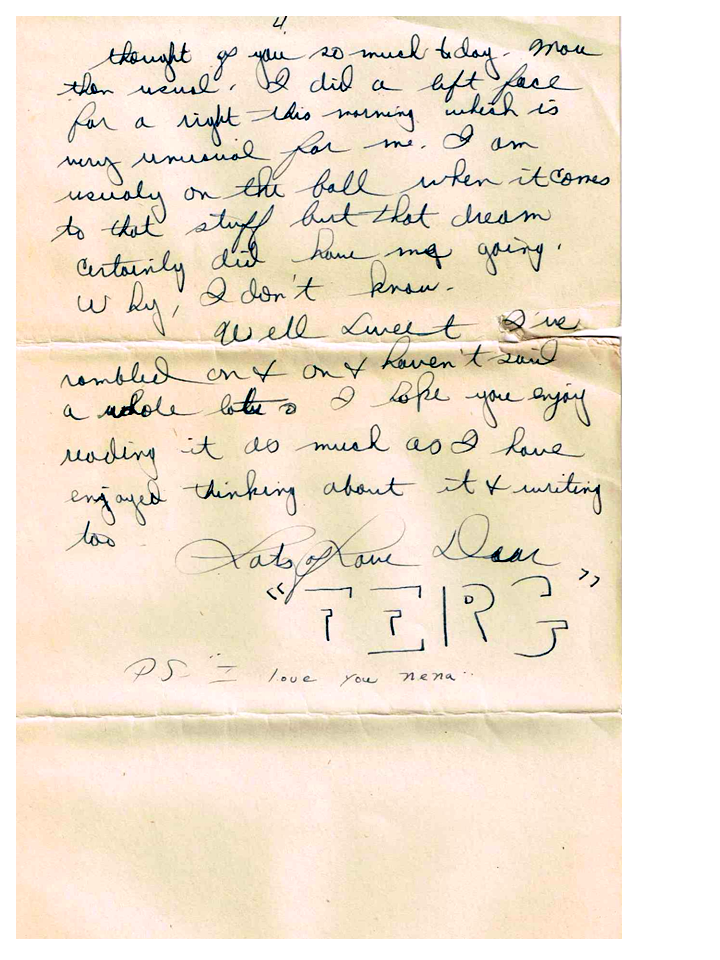 4.
thought of you so much today. More
than usual. I did a left face
for a right this morning which is
very unusual for me. I am
usualy on the ball when it comes
to that stuff but that dream
certainly did have me going.
Why, I don't know.
Well Sweet I've
rambled on & on & haven't said
a whole lots I hope you enjoy
reading it as much as I have
enjoyed thinking about it & writing
too
Lots of Love Dear
P.S. "I love you nena"